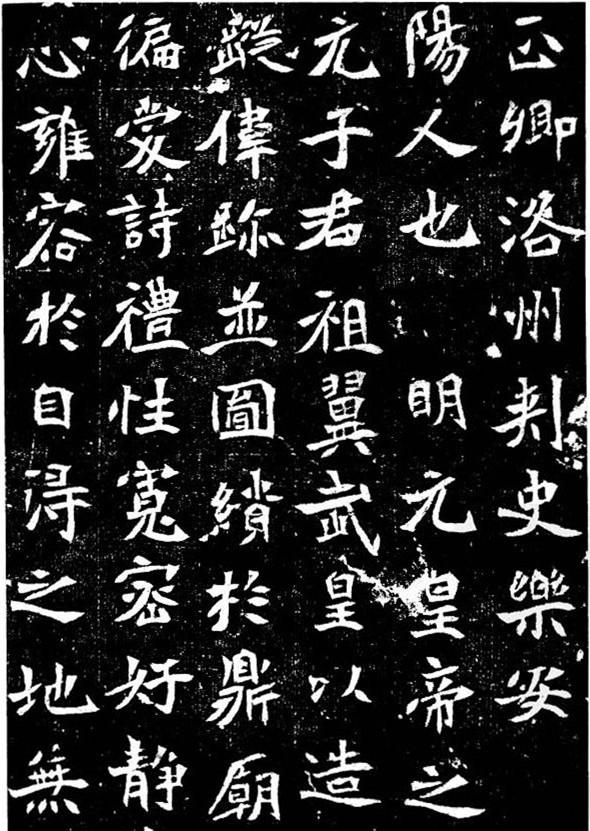 正卿洛州刾史樂安
陽人也明元皇帝之
元子君祖翼武皇以造
蹤偉跡並圖績於鼎廟
徧愛詩禮性寬密好靜
心雍容於自淂之地無